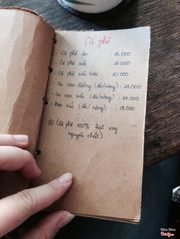 Cà phê
- Cà phê đen 15.000
- Cà phê sữa 18.000
- Cà phê sữa tươi 20.000
- Ca cao nóng (đá/nóng) : 25.000
- Ca cao sữa (đá/nóng) : 27.000
- Bạc xỉu (đá/nóng) : 18.000
(Cà phê 100% hạt xay
nguyên chất)